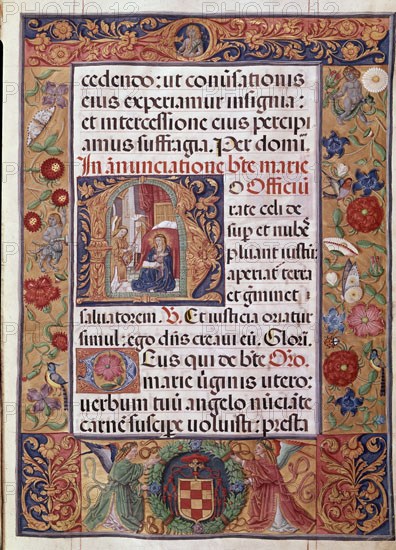 cedendo: ut conũsationis
eius experiamur insignia:
et intercessione eius percipi
amus suffragia. Per domĩ.
In ãnunciatione bt̃e marie
O Officiũ
rate celi de
sup et nubẽ
pluant iustũ:
aperiat̃ terra
et gminet
saluatorem. V. Et iusticia oriatur
simul: ego dñs creaui eũ. Glori.
Eus qui de bt̃e Oro.
marie ũginis utero:
uerbum tuũ angelo nũciãte
carnẽ suscipe voluisti: presta